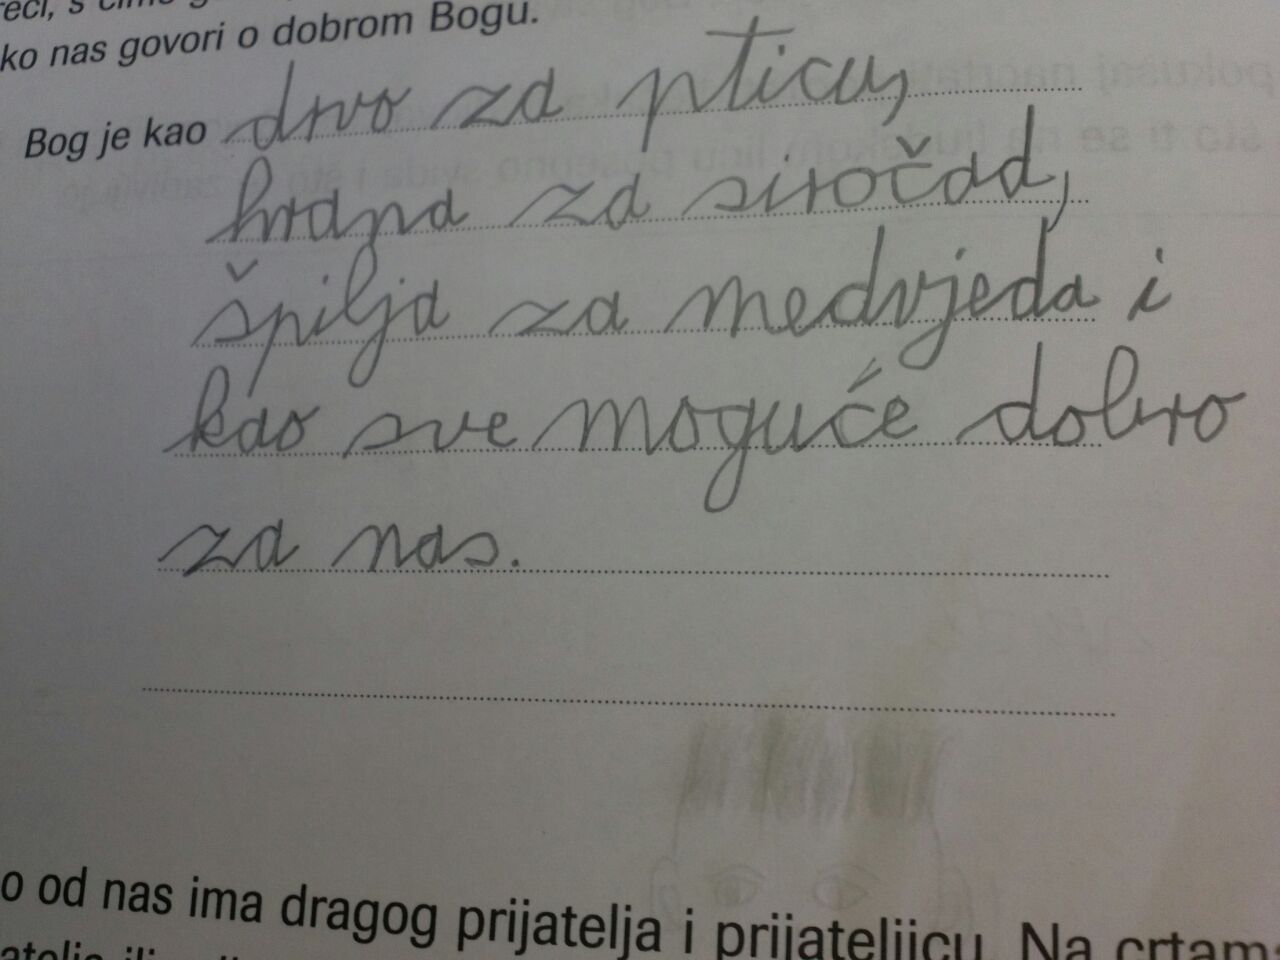 reći, s
ko nas govori o dobrom Bogu.
Bog je kao drvo za pticu,
hrana za siročad,
špilja za medvjeda i
kao sve moguće dobro
za nas.
o od nas ima dragog prijatelja i prijateljicu. Na